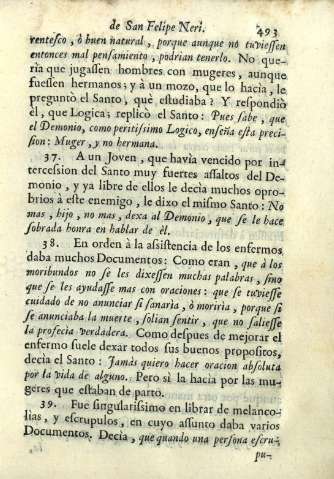 de San Felipe Neri. 493
rentesco, ò buen natural, porque aunque no tuviessen
entonces mal pensamiento, podrian tenerlo. No que-
ria que jugassen hombres con mugeres, aunque
fuessen hermanos; y à un mozo, que lo hacia, le
preguntò el Santo, què estudiaba? Y respondiò
èl, que Logica; replicò el Santo: Pues sabe, que
el Demonio, como peritissimo Logico, enseña esta preci-
sion: Muger, y no hermana.
37. A un Joven, que havia vencido por in-
tercession del Santo muy fuertes assaltos del De-
monio, y ya libre de ellos le decia muchos opro-
brios à este enemigo, le dixo el mismo Santo: No
mas, hijo, no mas, dexa al Demonio, que se le hace
sobrada honra en hablar de èl.
38. En orden à la assistencia de los enfermos
daba muchos Documentos: Como eran, que à los
moribundos no se les dixessen muchas palabras, sino
que se les ayudasse mas con oraciones: que se tuviesse
cuidado de no anunciar si sanaria, ò moriria, porque si
se anunciaba la muerte, solian sentir, que no saliesse
la profecia verdadera. Como despues de mejorar el
enfermo suele dexar todos sus buenos propositos,
decia el Santo: Jamàs quiero hacer oracion absoluta
por la vida de alguno. Pero sì la hacia por las mu-
geres que estaban de parto.
39. Fue singularissimo en librar de melanco-
lias, y escrupulos, en cuyo assunto daba varios
Documentos. Decia, que quando una persona escru-
pu-